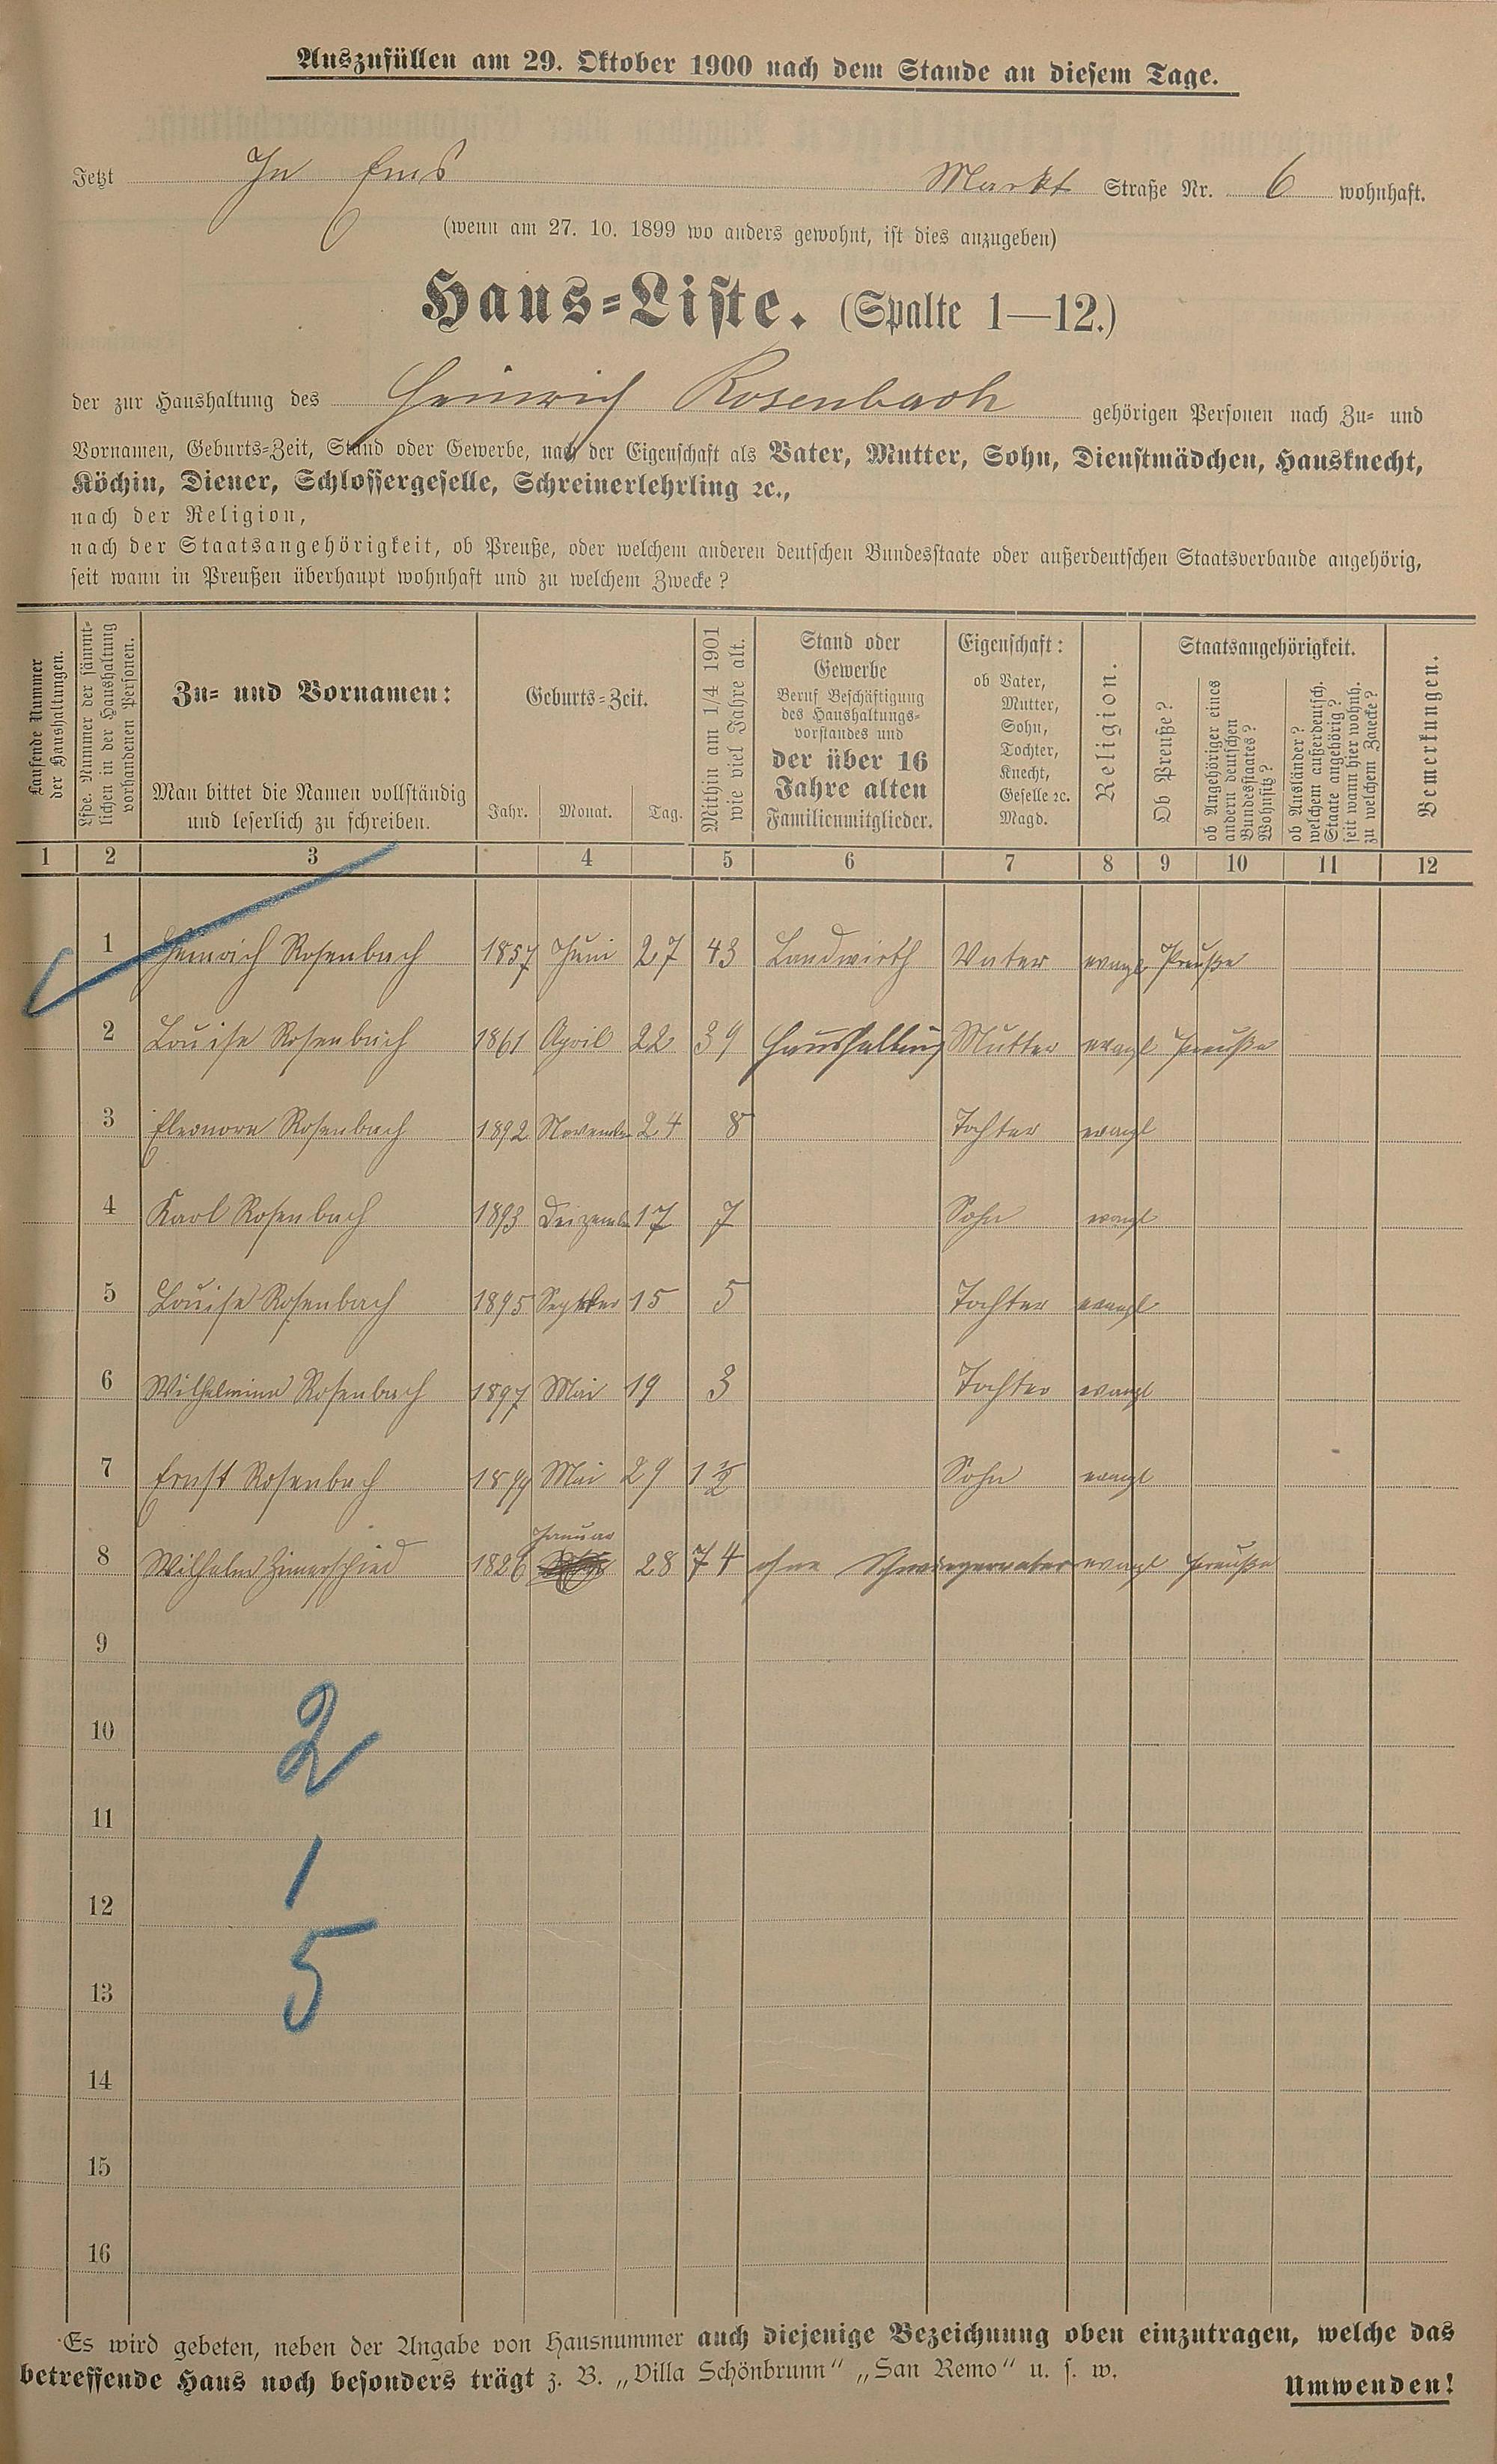 Auszufüllen am 29. Oktober 1900 nach dem Stande an diesem Tage.
Jetzt In Ems Markt Straße Nr. 6 wohnhaft.
(wenn am 27. 10. 1899 wo anders gewohnt, ist dies anzugeben)
Haus-Liste. (Spalte 1—12.)
der zur Haushaltung des Heinrich Rosenbach gehörigen Personen nach Zu- und
Vornamen, Geburts-Zeit, Stand oder Gewerbe, nach der Eigenschaft als Vater, Mutter, Sohn, Dienstmädchen, Hausknecht,
Köchin, Diener, Schlossergeselle, Schreinerlehrling ꝛc.,
nach der Religion,
nach der Staatsangehörigkeit, ob Preuße, oder welchem anderen deutschen Bundesstaate oder außerdeutschen Staatsverbande angehörig,
seit wann in Preußen überhaupt wohnhaft und zu welchem Zwecke?
Laufende Nummer
der Haushaltungen.
Lfde. Nummer der sämmt-
lichen in der Haushaltung
vorhandenen Personen.
Zu- und Vornamen:
Man bittet die Namen vollständig
und leserlich zu schreiben.
Geburts-Zeit.
Jahr. Monat. Tag.
Mithin am 1/4 1901
wie viel Jahre alt.
Stand oder
Gewerbe
Beruf Beschäftigung
des Haushaltungs-
vorstandes und
der über 16
Jahre alten
Familienmitglieder.
Eigenschaft:
ob Vater,
Mutter,
Sohn,
Tochter,
Knecht,
Geselle ꝛc.
Magd.
Religion.
Staatsangehörigkeit.
Ob Preuße?
ob Angehöriger eines
andern deutschen
Bundesstaates?
Wohnsitz?
ob Ausländer?
welchem außerdeutsch.
Staate angehörig?
seit wann hier wohnh.
zu welchem Zwecke?
Bemerkungen.
1 2 3 4 5 6 7 8 9 10 11 12
1 Heinrich Rosenbach 1857 Juni 27 43 Landwirth Vater evangl Preuße
2 Louise Rosenbach 1861 April 22 39 Haushaltung Mutter evangl Preuße
3 Eleonore Rosenbach 1892 November 24 8 Tochter evangl
4 Karl Rosenbach 1893 Dezember 17 7 Sohn evangl
5 Louise Rosenbach 1895 September 15 5 Tochter evangl
6 Wilhelmine Rosenbach 1897 Mai 19 3 Tochter evangl
7 Ernst Rosenbach 1899 Mai 29 1 1/2 Sohn evangl
Januar
8 Wilhelm Zimerschied 1826 28 74 ohne Schwiegervater evangl Preuße
9
10
2
11
12
1
13
5
14
15
16
Es wird gebeten, neben der Angabe von Hausnummer auch diejenige Bezeichnung oben einzutragen, welche das
betreffende Haus noch besonders trägt z. B. „Villa Schönbrunn“ „San Remo“ u. s. w.
Umwenden!